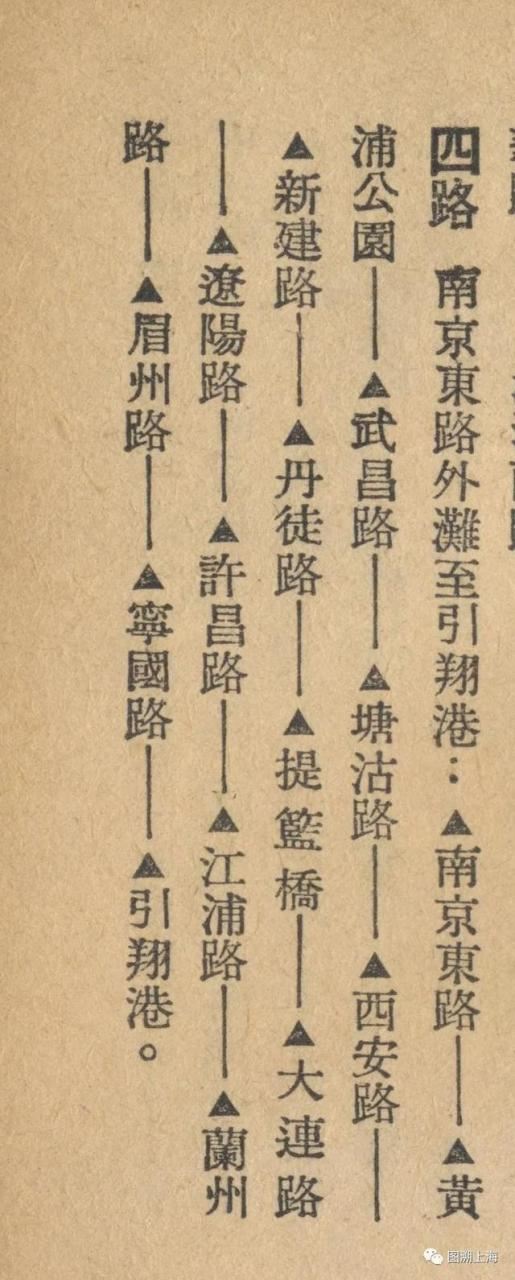 四路　南京東路外灘至引翔港：▲南京東路——▲黃
浦公園——▲武昌路——▲塘沽路——▲西安路——
▲新建路——▲丹徒路——▲提籃橋——▲大連路
——▲遼陽路——▲許昌路——▲江浦路——▲蘭州
路——▲眉州路——▲寧國路——▲引翔港。
图溯上海